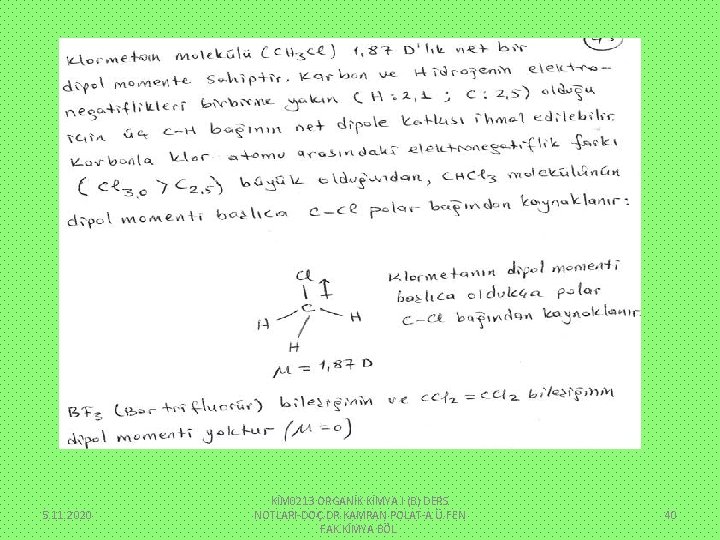 Klormetan molekülü (CH3Cl) 1,87 D'lık net bir
dipol momente sahiptir. Karbon ve Hidrojenin elektro-
negatiflikleri birbirine yakın (H:2,1 ; C:2,5) olduğu
için üç C-H bağının net dipole katkısı ihmal edilebilir.
Karbonla klor atomu arasındaki elektronegatiflik farkı
(Cl3,0 > C2,5) büyük olduğundan, CHCl3 molekülünün
dipol momenti başlıca C-Cl polar bağından kaynaklanır:
Cl
C
H
H
H
μ = 1,87 D
Klormetanın dipol momenti
başlıca oldukça polar
C-Cl bağından kaynaklanır.
BF3 (Bor triflorür) bileşiğinin ve CCl2=CCl2 bileşiğinin
dipol momenti yoktur (μ=0)
5.11.2020
KİM0213 ORGANİK KİMYA I (B) DERS
NOTLARI-DOÇ.DR.KAMRAN POLAT-A.Ü.FEN
FAK.KİMYA BÖL
40